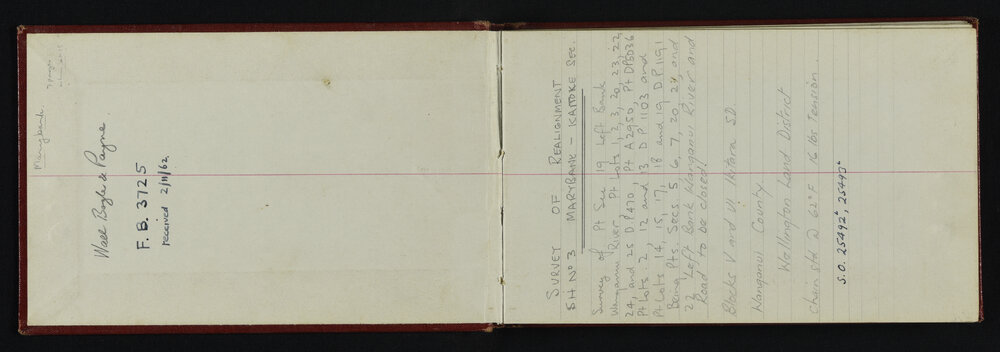 Marybank
7 pages
Wall Bogle & Payne
F.B. 3725
received 2/11/62
SURVEY OF REALIGNMENT
SH Nº 3 MARYBANK - KAITOKE SEC.
Survey of Pt Sec 19 Left Bank
Wanganui River, Pt Lots 1, 2, 3, 20, 23, 22
24, and 25 D.P 470, Pt A 2950, Pt DP 5036
Pt Lots 2, 12 and 13 D.P 1103 and
Pt Lots 14, 15, 17, 18 and 19 D.P. 1191
Being Pts. Secs. 5, 6, 7, 20, 24, and
22 Left Bank Wanganui River and
Road to be closed!
Blocks V and VI Ikitara SD
Wanganui County.
Wellington Land District
Chain std @ 62° F 16 lbs Tension.
S.O. 25492, 25493